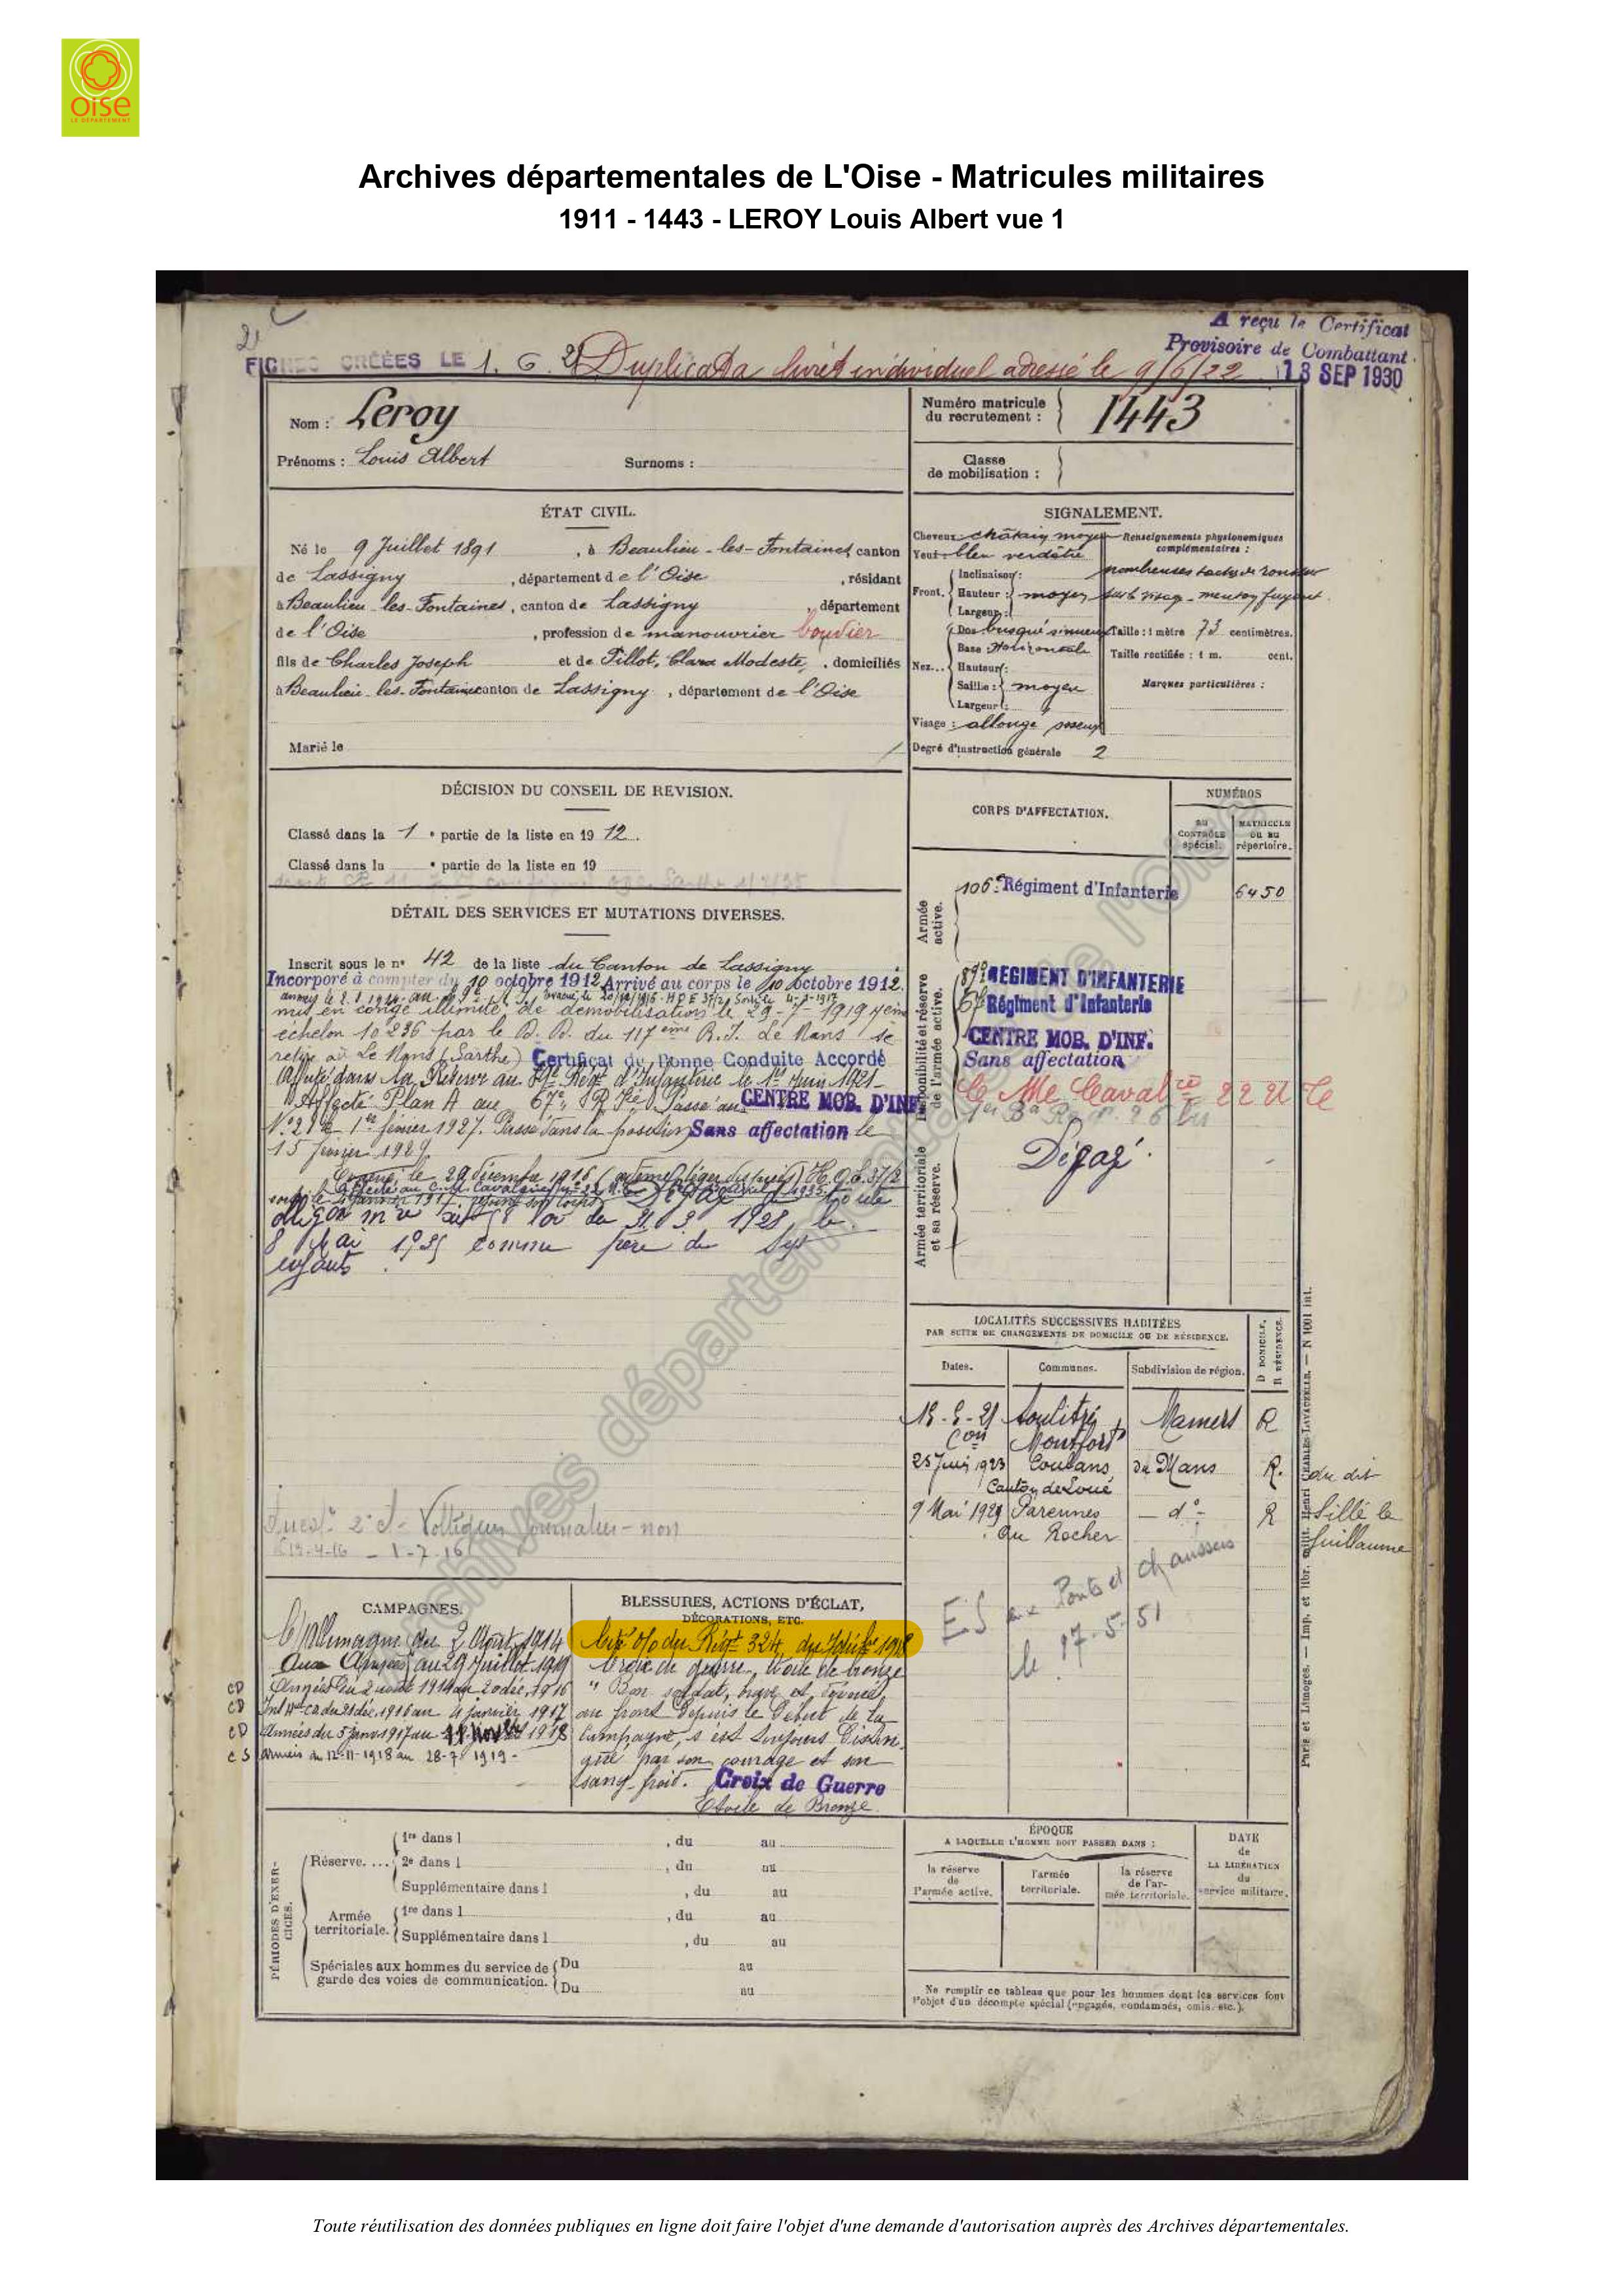 oise
LE DÉPARTEMENT
Archives départementales de L'Oise - Matricules militaires
1911 - 1443 - LEROY Louis Albert vue 1
A reçu le Certificat
Provisoire de Combattant
13 SEP 1930
FICHES CRÉÉES LE 1. G. 21 Duplicata livret individuel adressé le 9/6/22
Nom : Leroy
Prénoms : Louis Albert Surnoms :
Numéro matricule
du recrutement : 1443
Classe
de mobilisation :
ÉTAT CIVIL.
Né le 9 Juillet 1891, à Beaulieu-les-Fontaines, canton
de Lassigny, département de l'Oise, résidant
à Beaulieu-les-Fontaines, canton de Lassigny, département
de l'Oise, profession de manouvrier bouvier
fils de Charles Joseph et de Pillot, Clara Modeste, domiciliés
à Beaulieu-les-Fontaines canton de Lassigny, département de l'Oise
Marié le
SIGNALEMENT.
Cheveux châtain moyen
Yeux bleu verdâtre
Front. Inclinaison :
Hauteur : moyen
Largeur :
Nez... Dos busqué sinueux
Base Horizontale
Hauteur :
Saillie : moyen
Largeur :
Visage : allongé osseux
Renseignements physionomiques
complémentaires :
nombreuses taches de rousseur
sur le visage - menton fuyant
Taille : 1 mètre 73 centimètres.
Taille rectifiée : 1 m. cent.
Marques particulières :
Degré d'instruction générale 2
DÉCISION DU CONSEIL DE REVISION.
Classé dans la 1e partie de la liste en 1912.
Classé dans la e partie de la liste en 19
DÉTAIL DES SERVICES ET MUTATIONS DIVERSES.
Inscrit sous le n° 42 de la liste du Canton de Lassigny
Incorporé à compter du 10 octobre 1912 Arrivé au corps le 10 octobre 1912.
mis en congé illimité de démobilisation le 29-7-1919 4ème
échelon 10236 par le D. D. du 117ème R.I. Le Mans se
retire au Le Mans (Sarthe) Certificat de Bonne Conduite Accordé
Affecté dans la Réserve au 89e Régt d'Infanterie le 1er Juin 1921
Affecté Plan A au 67e Passé au CENTRE MOB. D'INF.
1er février 1927. Passé dans la position Sans affectation le
15 février 1929
Evacué le 20 décembre 1916 H.O.E. 37/2
8 Mai 1935 comme père de
enfants
2e Cl - Voltigeur Journalier - non
19-4-16 - 1-7-16
CORPS D'AFFECTATION.
NUMÉROS
au
CONTRÔLE
spécial.
MATRICULE
OU AU
répertoire.
Armée
active.
106e Régiment d'Infanterie 6450
Disponibilité et réserve
de l'armée active.
89e REGIMENT D'INFANTERIE
67e Régiment d'Infanterie
CENTRE MOB. D'INF.
Sans affectation
Armée territoriale
et sa réserve.
Dégagé.
LOCALITÉS SUCCESSIVES HABITÉES
PAR SUITE DE CHANGEMENTS DE DOMICILE OU DE RÉSIDENCE.
Dates. Communes. Subdivision de région.
D DOMICILE,
R RÉSIDENCE.
Soulitré Mamers R
Con Montfort
25 Juin 1923 Coulans du Mans R. du dit
Canton de Loué
9 Mai 1929 Parennes - do - R Sillé le
Guillaume
ES aux Ponts et chaussées
le 17-5-51
Paris et Limoges. — Imp. et libr. milit. Henri CHARLES-LAVAUZELLE. — N 1001 int.
CAMPAGNES.
C/ Allemagne du 2 Août 1914
Aux Armées au 29 Juillet 1919
CD Armées du 2 août 1914 au 20 déc. 1916
CD Int. du 21 déc. 1916 au 4 janvier 1917
CD Armées du 5 janv 1917 au 11 Nov 1918
CS armées du 12-11-1918 au 28-7-1919 -
BLESSURES, ACTIONS D'ÉCLAT,
DÉCORATIONS, ETC.
Cité o/o du Régt 324, du 1918
Croix de guerre, étoile de bronze
" Bon soldat, brave et dévoué,
au front depuis le début de la
Campagne, s'est toujours distin-
gué par son courage et son
sang-froid. Croix de Guerre
Etoile de Bronze
PÉRIODES D'EXER-
CICES.
Réserve.... 1re dans l , du au
2e dans l , du au
Supplémentaire dans l , du au
Armée
territoriale. 1re dans l , du au
Supplémentaire dans l , du au
Spéciales aux hommes du service de
garde des voies de communication. Du au
Du au
ÉPOQUE
A LAQUELLE L'HOMME DOIT PASSER DANS :
la réserve
de
l'armée active.
l'armée
territoriale.
la réserve
de l'ar-
mée territoriale.
DATE
de
LA LIBÉRATION
du
service militaire.
Ne remplir ce tableau que pour les hommes dont les services font
l'objet d'un décompte spécial (engagés, condamnés, omis, etc.).
Archives départementales de l'Oise
Toute réutilisation des données publiques en ligne doit faire l'objet d'une demande d'autorisation auprès des Archives départementales.